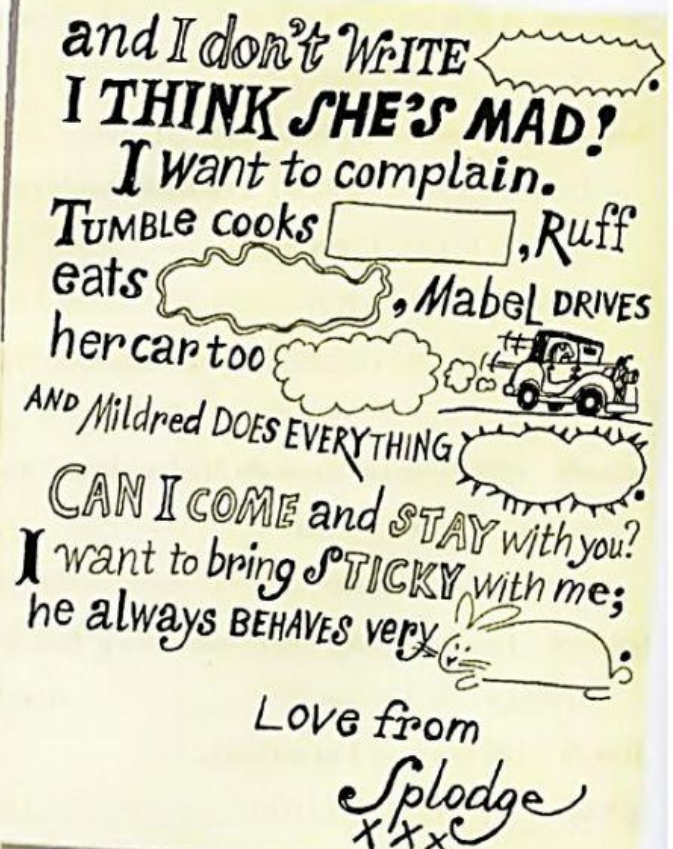 and I don't WrITE .
I THINK SHE'S MAD!
I want to complain.
TUMBLe cooks , Ruff
eats , MabeL DRIVES
her car too
AND Mildred DOES EVERYTHING .
CAN I COME and STAY with you?
I want to bring STICKY with me;
he always BEHAVES very .
Love from
Splodge
xxx